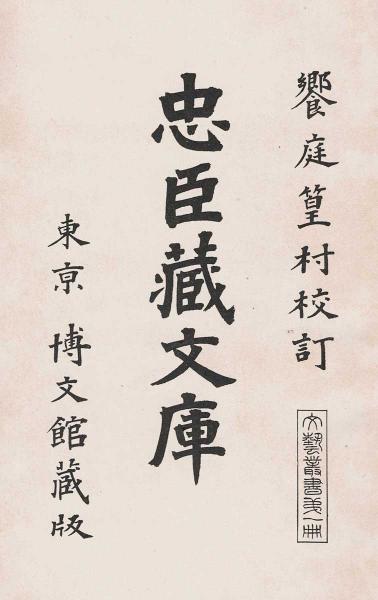 饗庭篁村校訂
文藝叢書第一冊
忠臣藏文庫
東京 博文館藏版